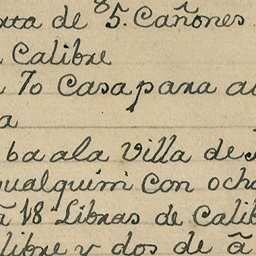 de 85. Cañones
Calibre
70 Casa para a
a
ba ala Villa de
ualquiri con och
ã 18 Libras de Calib
libre y dos de ã